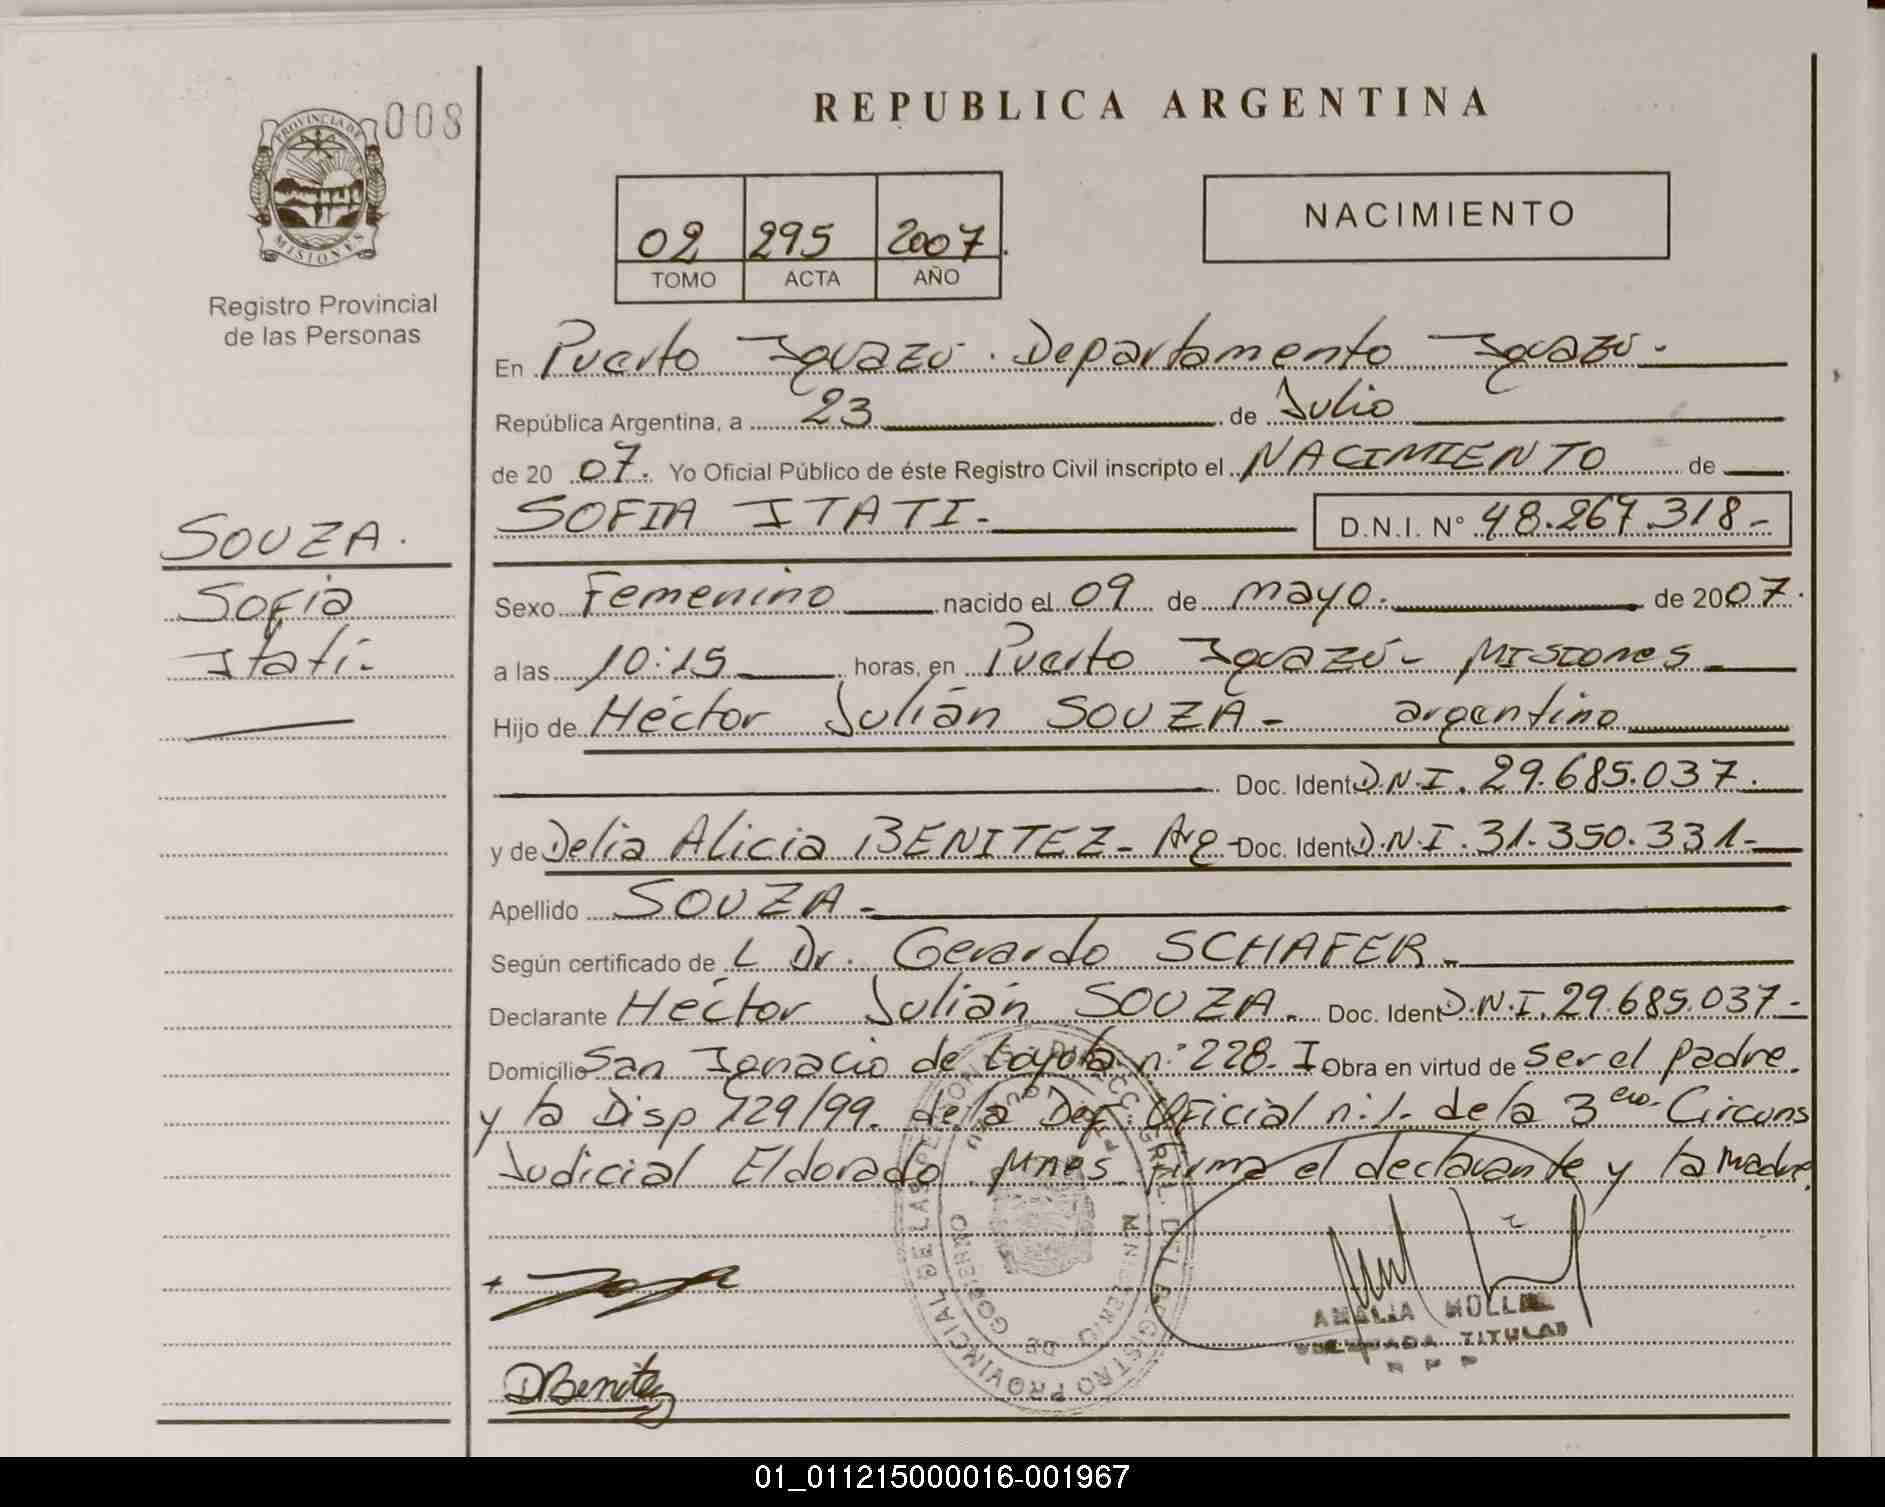 008
PROVINCIA DE
MISIONES
Registro Provincial
de las Personas
REPUBLICA ARGENTINA
02 295 2007.
TOMO ACTA AÑO
NACIMIENTO
En Puerto Iguazú. Departamento Iguazú.
República Argentina, a 23 de Julio
de 20 07. Yo Oficial Público de éste Registro Civil inscripto el NACIMIENTO de
SOFIA ITATI- D.N.I. N° 48.267.318-
SOUZA.
Sofia
Itatí-
Sexo Femenino nacido el 09 de mayo. de 2007.
a las 10:15 horas, en Puerto Iguazú- Misiones
Hijo de Héctor Julián SOUZA- argentino
Doc. Ident D.N.I. 29.685.037.
y de Delia Alicia BENITEZ- Arg - Doc. Ident D.N.I. 31.350.331-
Apellido SOUZA-
Según certificado de L Dr. Gerardo SCHAFER-
Declarante Héctor Julián SOUZA. Doc. Ident D.N.I. 29.685.037-
Domicilio San Ignacio de Loyola n° 228- I Obra en virtud de ser el padre.
y la Disp 729/99. de la Def. Oficial n:1- de la 3 era. Circuns
Judicial Eldorado Mnes. Firma el declarante y la madre.
REGISTRO PROVINCIAL DE LAS PERSONAS
MINISTERIO DE GOBIERNO
DBenitez
TITULAR
01_011215000016-001967